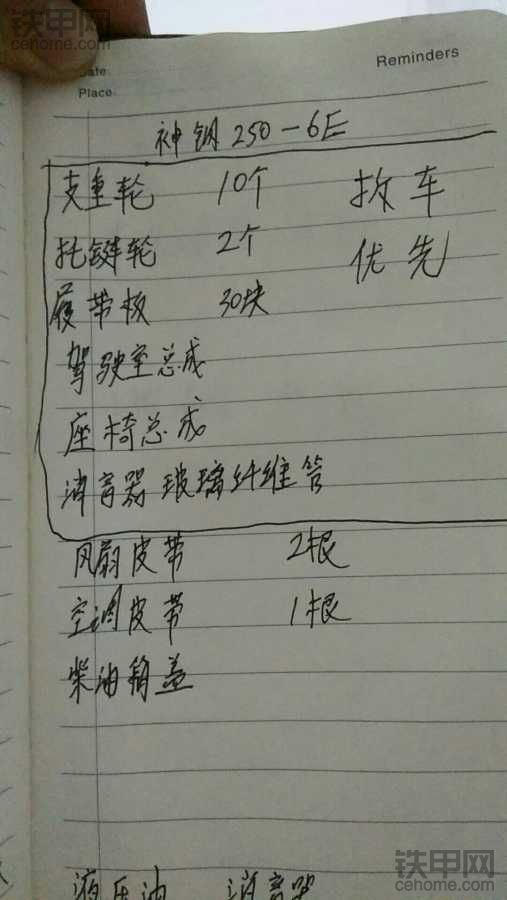 铁甲网
cehome.com
Date
Reminders
Place
神钢250-6E
支重轮 10个 放车
托链轮 2个 优先
履带板 30块
驾驶室总成
座椅总成
消音器玻璃纤维管
风扇皮带 2根
空调皮带 1根
柴油箱盖
液压油 消音器
铁甲网
cehome.com